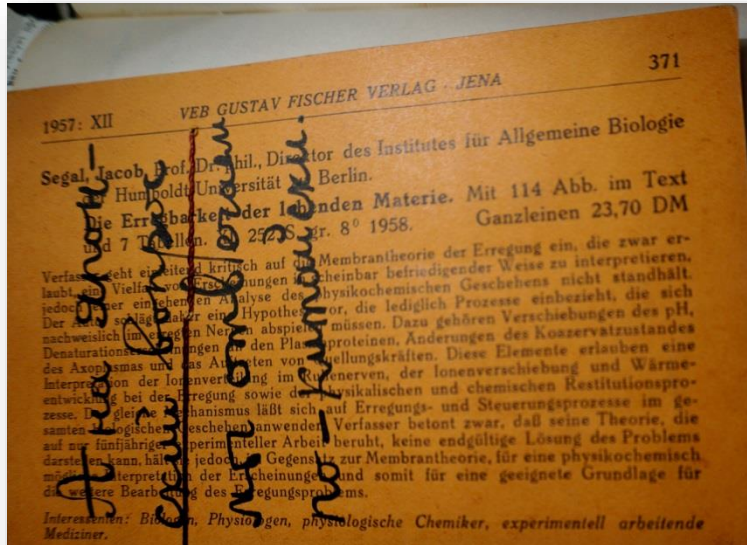 371
1957: XII VEB GUSTAV FISCHER VERLAG · JENA
Segal, Jacob, Prof. Dr. phil., Direktor des Institutes für Allgemeine Biologie
der Humboldt-Universität Berlin.
Die Erregbarkeit der lebenden Materie. Mit 114 Abb. im Text
und 7 Tabellen. 252 S. gr. 8° 1958. Ganzleinen 23,70 DM
Verfasser geht einleitend kritisch auf die Membrantheorie der Erregung ein, die zwar er-
laubt, eine Vielfalt von Erscheinungen in scheinbar befriedigender Weise zu interpretieren,
jedoch einer eingehenden Analyse des physikochemischen Geschehens nicht standhält.
Der Autor schlägt daher eine Hypothese vor, die lediglich Prozesse einbezieht, die sich
nachweislich im erregten Nerven abspielen müssen. Dazu gehören Verschiebungen des pH,
Denaturationserscheinungen an den Plasmaproteinen, Änderungen des Koazervatzustandes
des Axoplasmas und das Auftreten von Quellungskräften. Diese Elemente erlauben eine
Interpretation der Ionenverteilung im Ruhenerven, der Ionenverschiebung und Wärme-
entwicklung bei der Erregung sowie der physikalischen und chemischen Restitutionspro-
zesse. Der gleiche Mechanismus läßt sich auf Erregungs- und Steuerungsprozesse im ge-
samten biologischen Geschehen anwenden. Verfasser betont zwar, daß seine Theorie, die
auf nur fünfjähriger experimenteller Arbeit beruht, keine endgültige Lösung des Problems
darstellen kann, hält sie jedoch, im Gegensatz zur Membrantheorie, für eine physikochemisch
mögliche Interpretation der Erscheinungen und somit für eine geeignete Grundlage für
die weitere Bearbeitung des Erregungsproblems.
Interessenten: Biologen, Physiologen, physiologische Chemiker, experimentell arbeitende
Mediziner.
На япон-
ский вопрос
по-китайски.